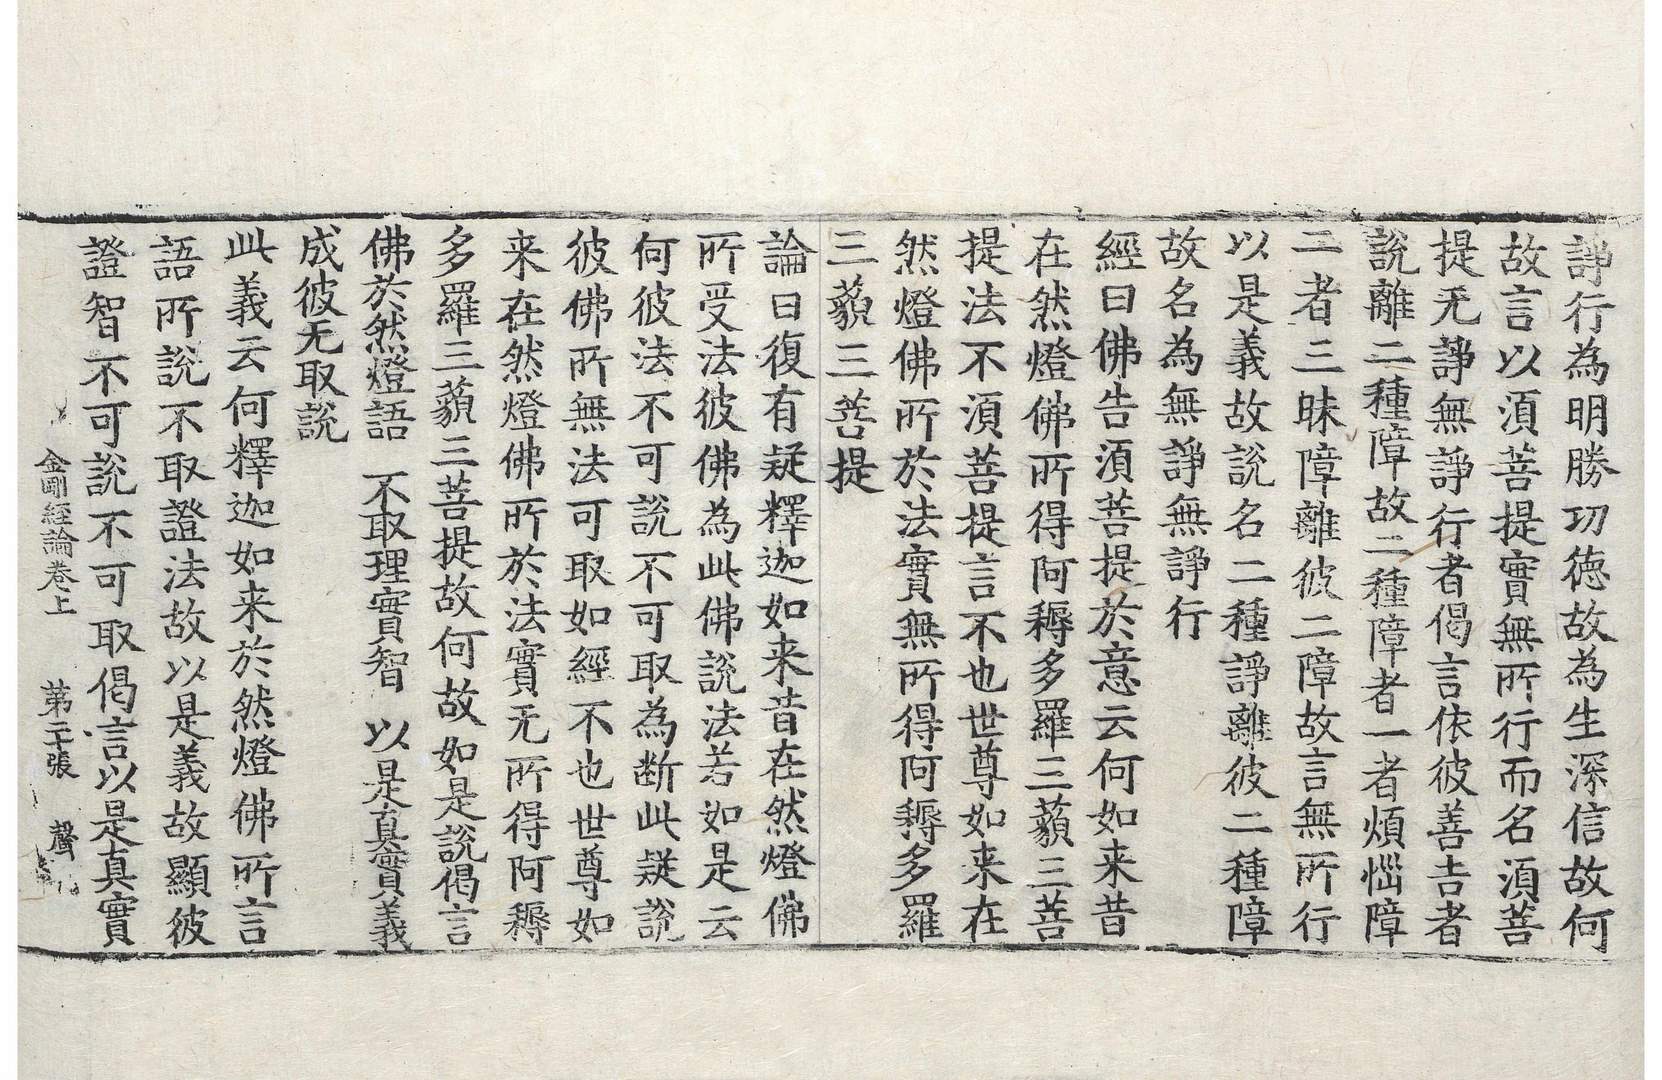 諍行為明勝功徳故為生深信故何
故言以湏菩提實無所行而名湏菩
提无諍無諍行者偈言依彼善吉者
說離二種障故二種障者一者煩惱障
二者三昧障離彼二障故言無所行
以是義故說名二種諍離彼二種障
故名為無諍無諍行
經曰佛告湏菩提於意云何如来昔
在然燈佛所得阿耨多羅三藐三菩
提法不湏菩提言不也世尊如来在
然燈佛所於法實無所得阿耨多羅
三藐三菩提
論曰復有疑釋迦如来昔在然燈佛
所受法彼佛為此佛說法若如是云
何彼法不可說不可取為断此疑說
彼佛所無法可取如經不也世尊如
来在然燈佛所於法實无所得阿耨
多羅三藐三菩提故何故如是說偈言
佛於然燈語 不取理實智 以是真實義
成彼无取說
此義云何釋迦如来於然燈佛所言
語所說不取證法故以是義故顯彼
證智不可說不可取偈言以是真實
金剛經論卷上 第二十張 聲